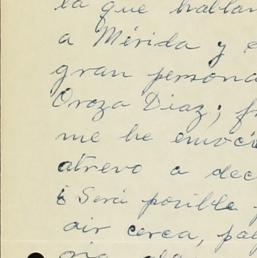 la que hablan
a Mérida y e
gran persona
Oroza Diaz; f
me he emoció
atrevo a dec
¿Será posible
air cerca, pal